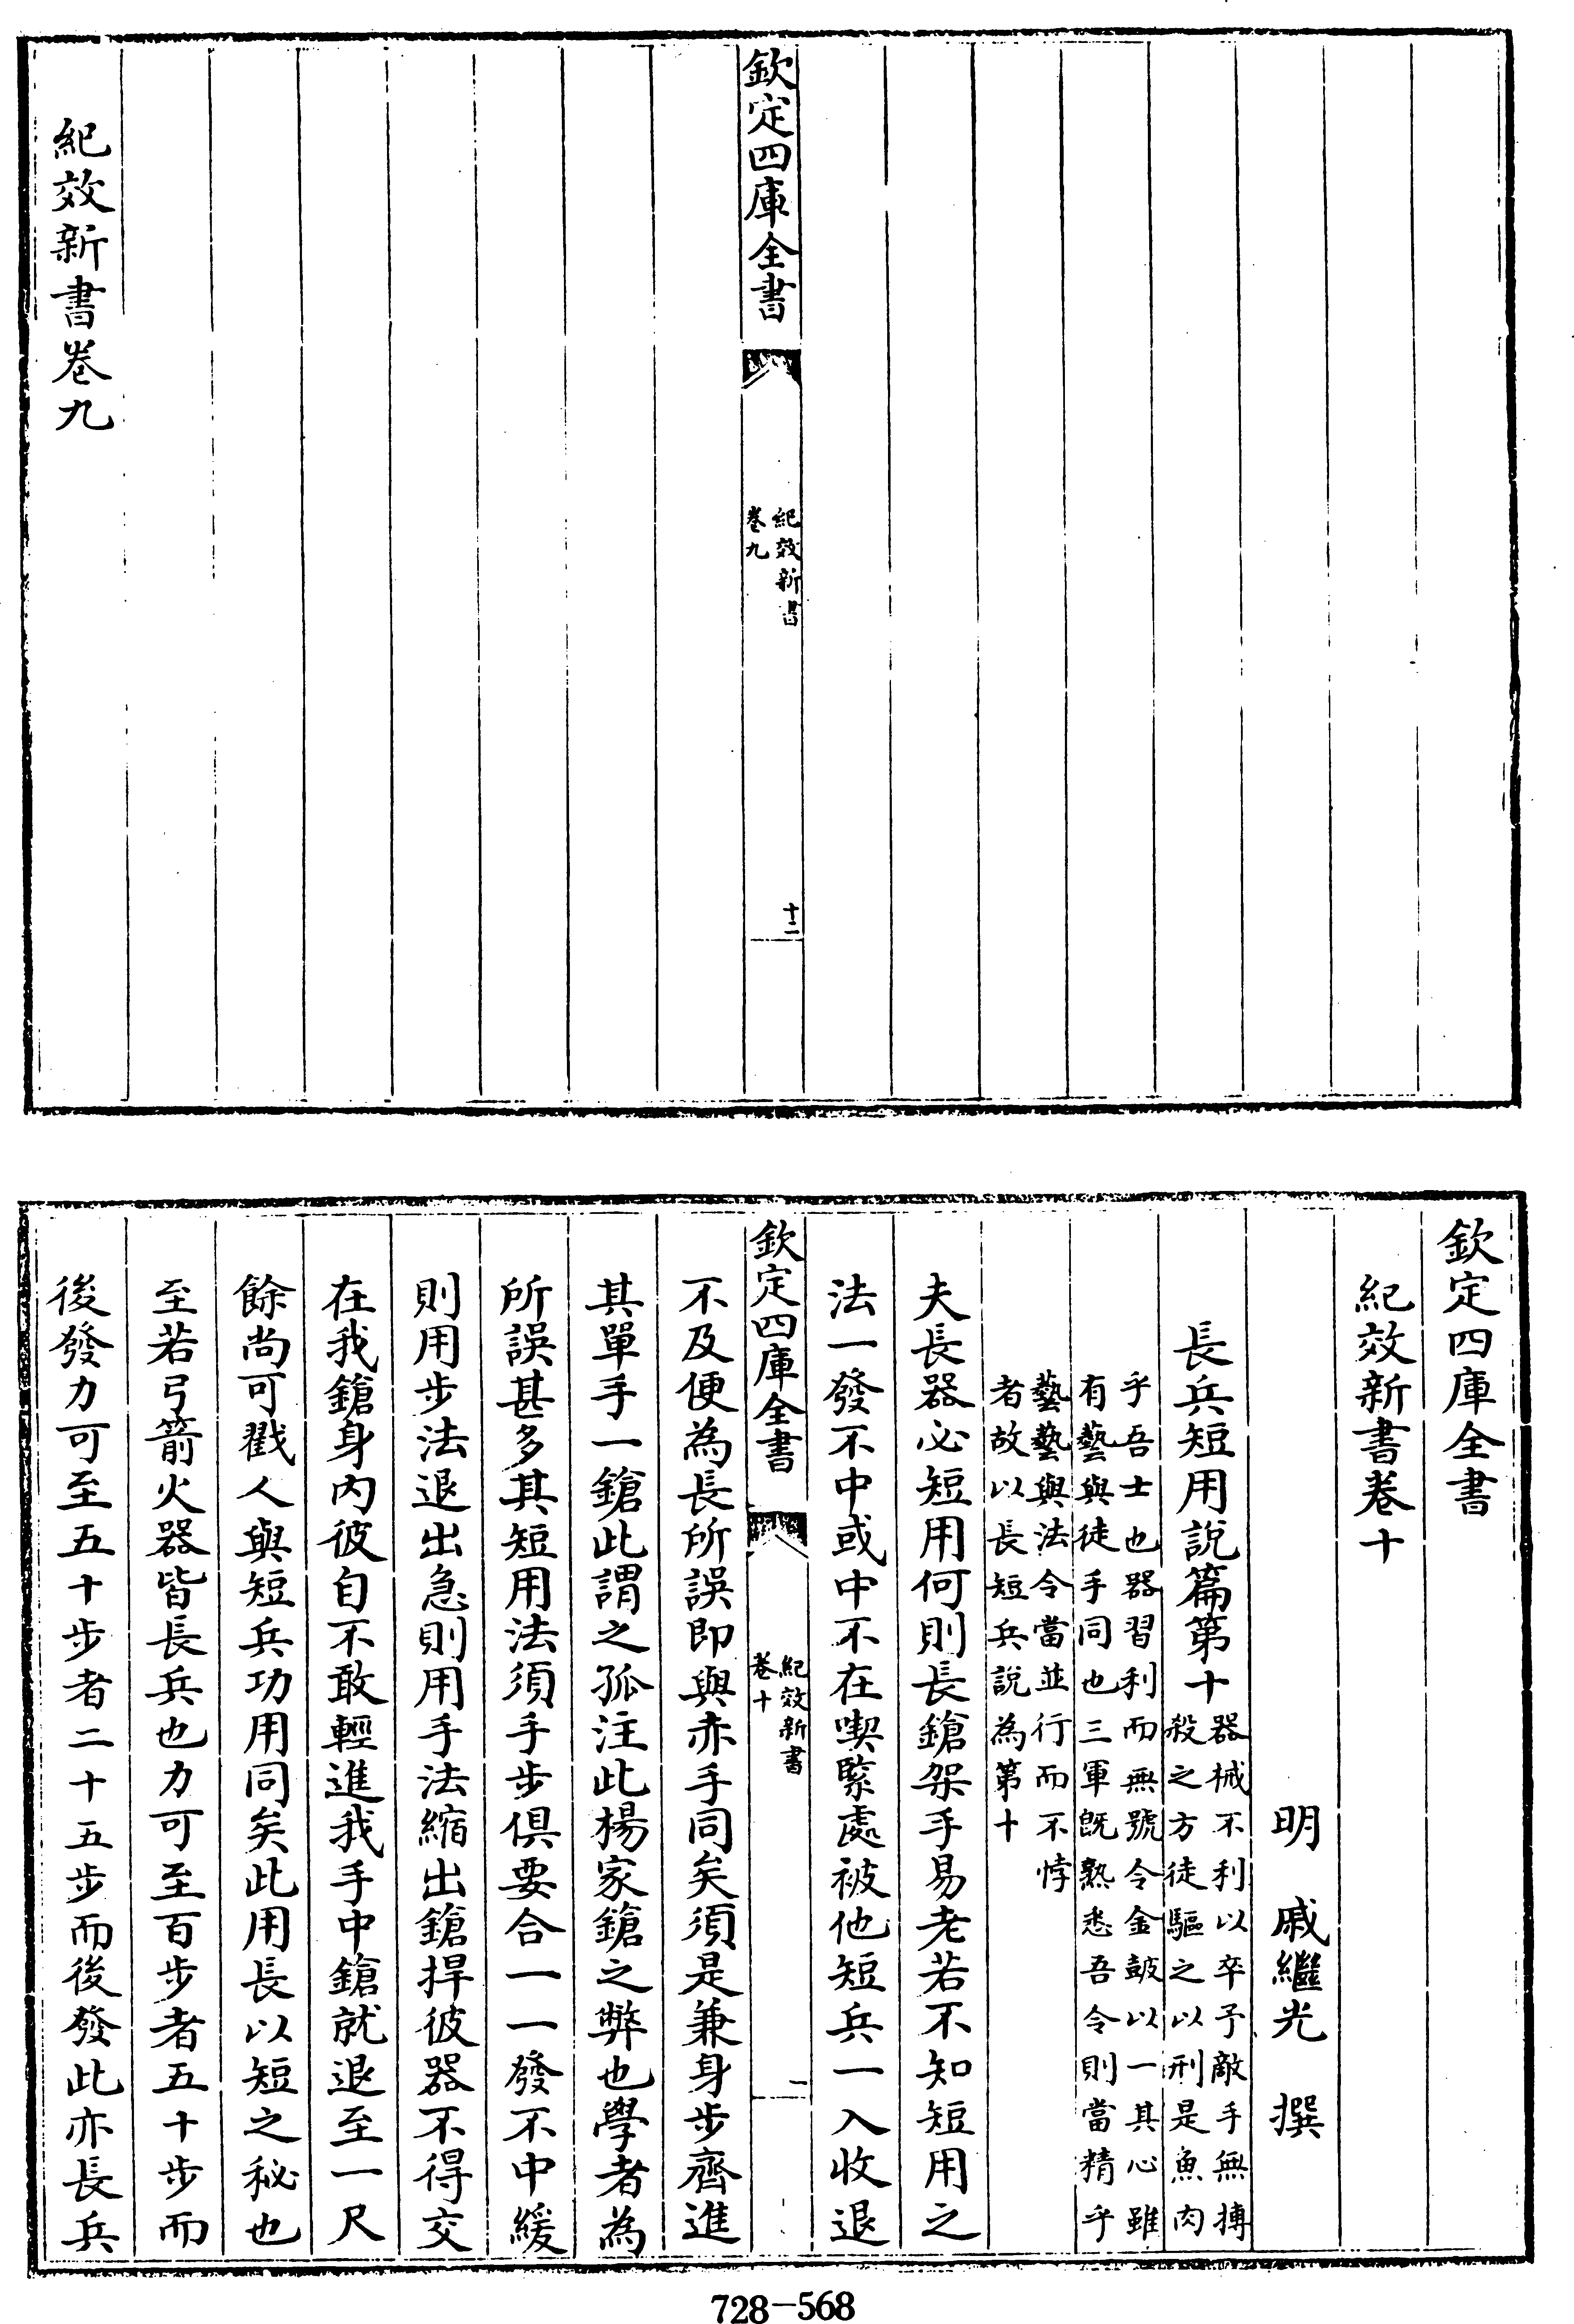 欽定四庫全書
紀效新書
卷九
十二
紀效新書卷九
欽定四庫全書
紀效新書卷十
明 戚繼光 撰
長兵短用說篇第十
器械不利以卒予敵手無搏
殺之方徒驅之以刑是魚肉
乎吾士也器習利而無號令金鼓以一其心雖
有藝與徒手同也三軍既熟悉吾令則當精乎
藝藝與法令當並行而不悖
者故以長短兵說為第十
夫長器必短用何則長鎗架手易老若不知短用之
法一發不中或中不在喫緊處被他短兵一入收退
欽定四庫全書
紀效新書
卷十
一
不及便為長所誤即與赤手同矣須是兼身步齊進
其單手一鎗此謂之孤注此楊家鎗之弊也學者為
所誤甚多其短用法須手步俱要合一一發不中緩
則用步法退出急則用手法縮出鎗捍彼器不得交
在我鎗身內彼自不敢輕進我手中鎗就退至一尺
餘尚可戳人與短兵功用同矣此用長以短之秘也
至若弓箭火器皆長兵也力可至百步者五十步而
後發力可至五十步者二十五步而後發此亦長兵
728-568